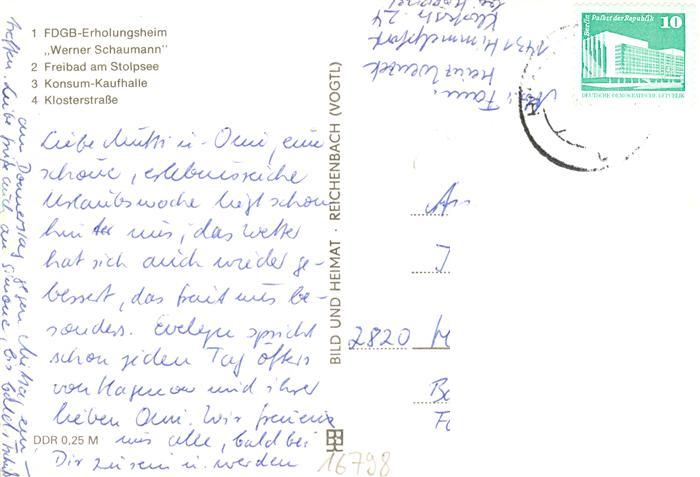 1 FDGB-Erholungsheim
„Werner Schaumann"
2 Freibad am Stolpsee
3 Konsum-Kaufhalle
4 Klosterstraße
Liebe Mutti u. Omi, eine
schöne, erlebnisreiche
Urlaubswoche liegt schon
hinter uns, das Wetter
hat sich auch wieder ge-
bessert, das freut uns be-
sonders. Evelyn spricht
schon jeden Tag öfters
von Hagenow und ihrer
lieben Omi. Wir freuen
uns alle, bald bei
Dir zu sein u. werden
am Donnerstag gegen Mittag ein-
treffen. Liebe Grüße auch an Simone, bis bald
DDR 0,25 M
BILD UND HEIMAT · REICHENBACH (VOGTL)
Abs.: Fam.
Heinz
1431 Himmelpfort
Klosterstr. 24
bei
Berlin Palast der Republik
10
DEUTSCHE DEMOKRATISCHE REPUBLIK
An
2820 H
16798